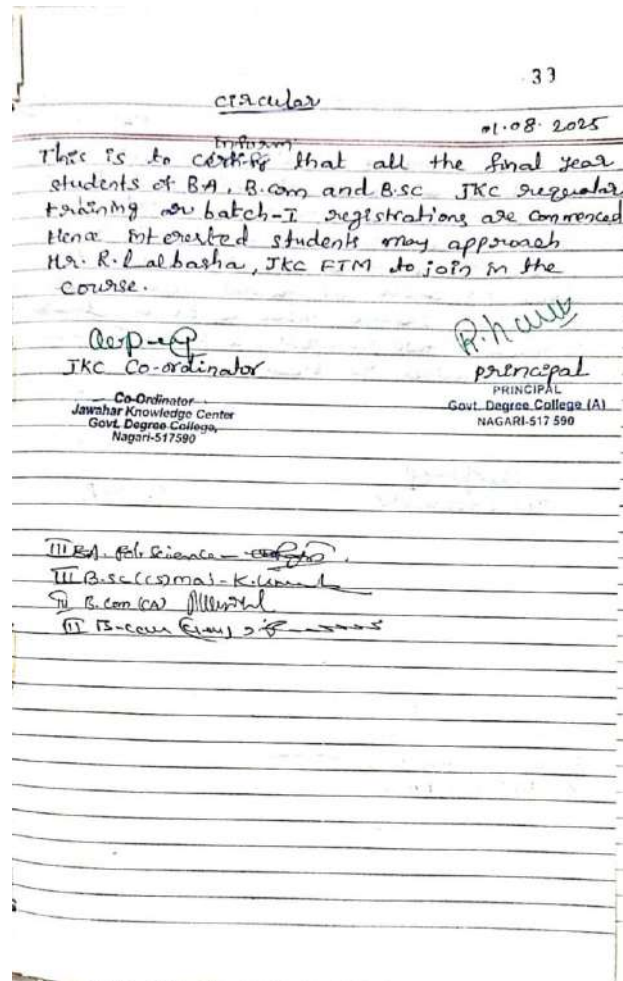 33
circular
01.08.2025
Inform
This is to certify that all the final year
students of BA, B.com and B.sc JKC reguelar
training or batch-I registrations are commenced
Hence interested students may approach
Mr. R. Lalbasha, JKC FTM to join in the
course.
JKC Co-ordinator
Co-Ordinator
Jawahar Knowledge Center
Govt. Degree College,
Nagari-517590
principal
PRINCIPAL
Govt. Degree College (A)
NAGARI-517 590
III BA. Pol. Science -
III B.sc (cs) mai -
III B.com (CA)
III B-com